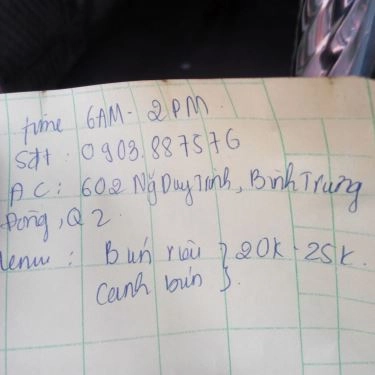 time 6AM - 2PM.
Sđt: 0903.887576
ĐC: 602 Ng Duy Trinh, Bình Trưng
Đông, Q2.
Menu: Bún riêu } 20K - 25K.
Canh bún }.